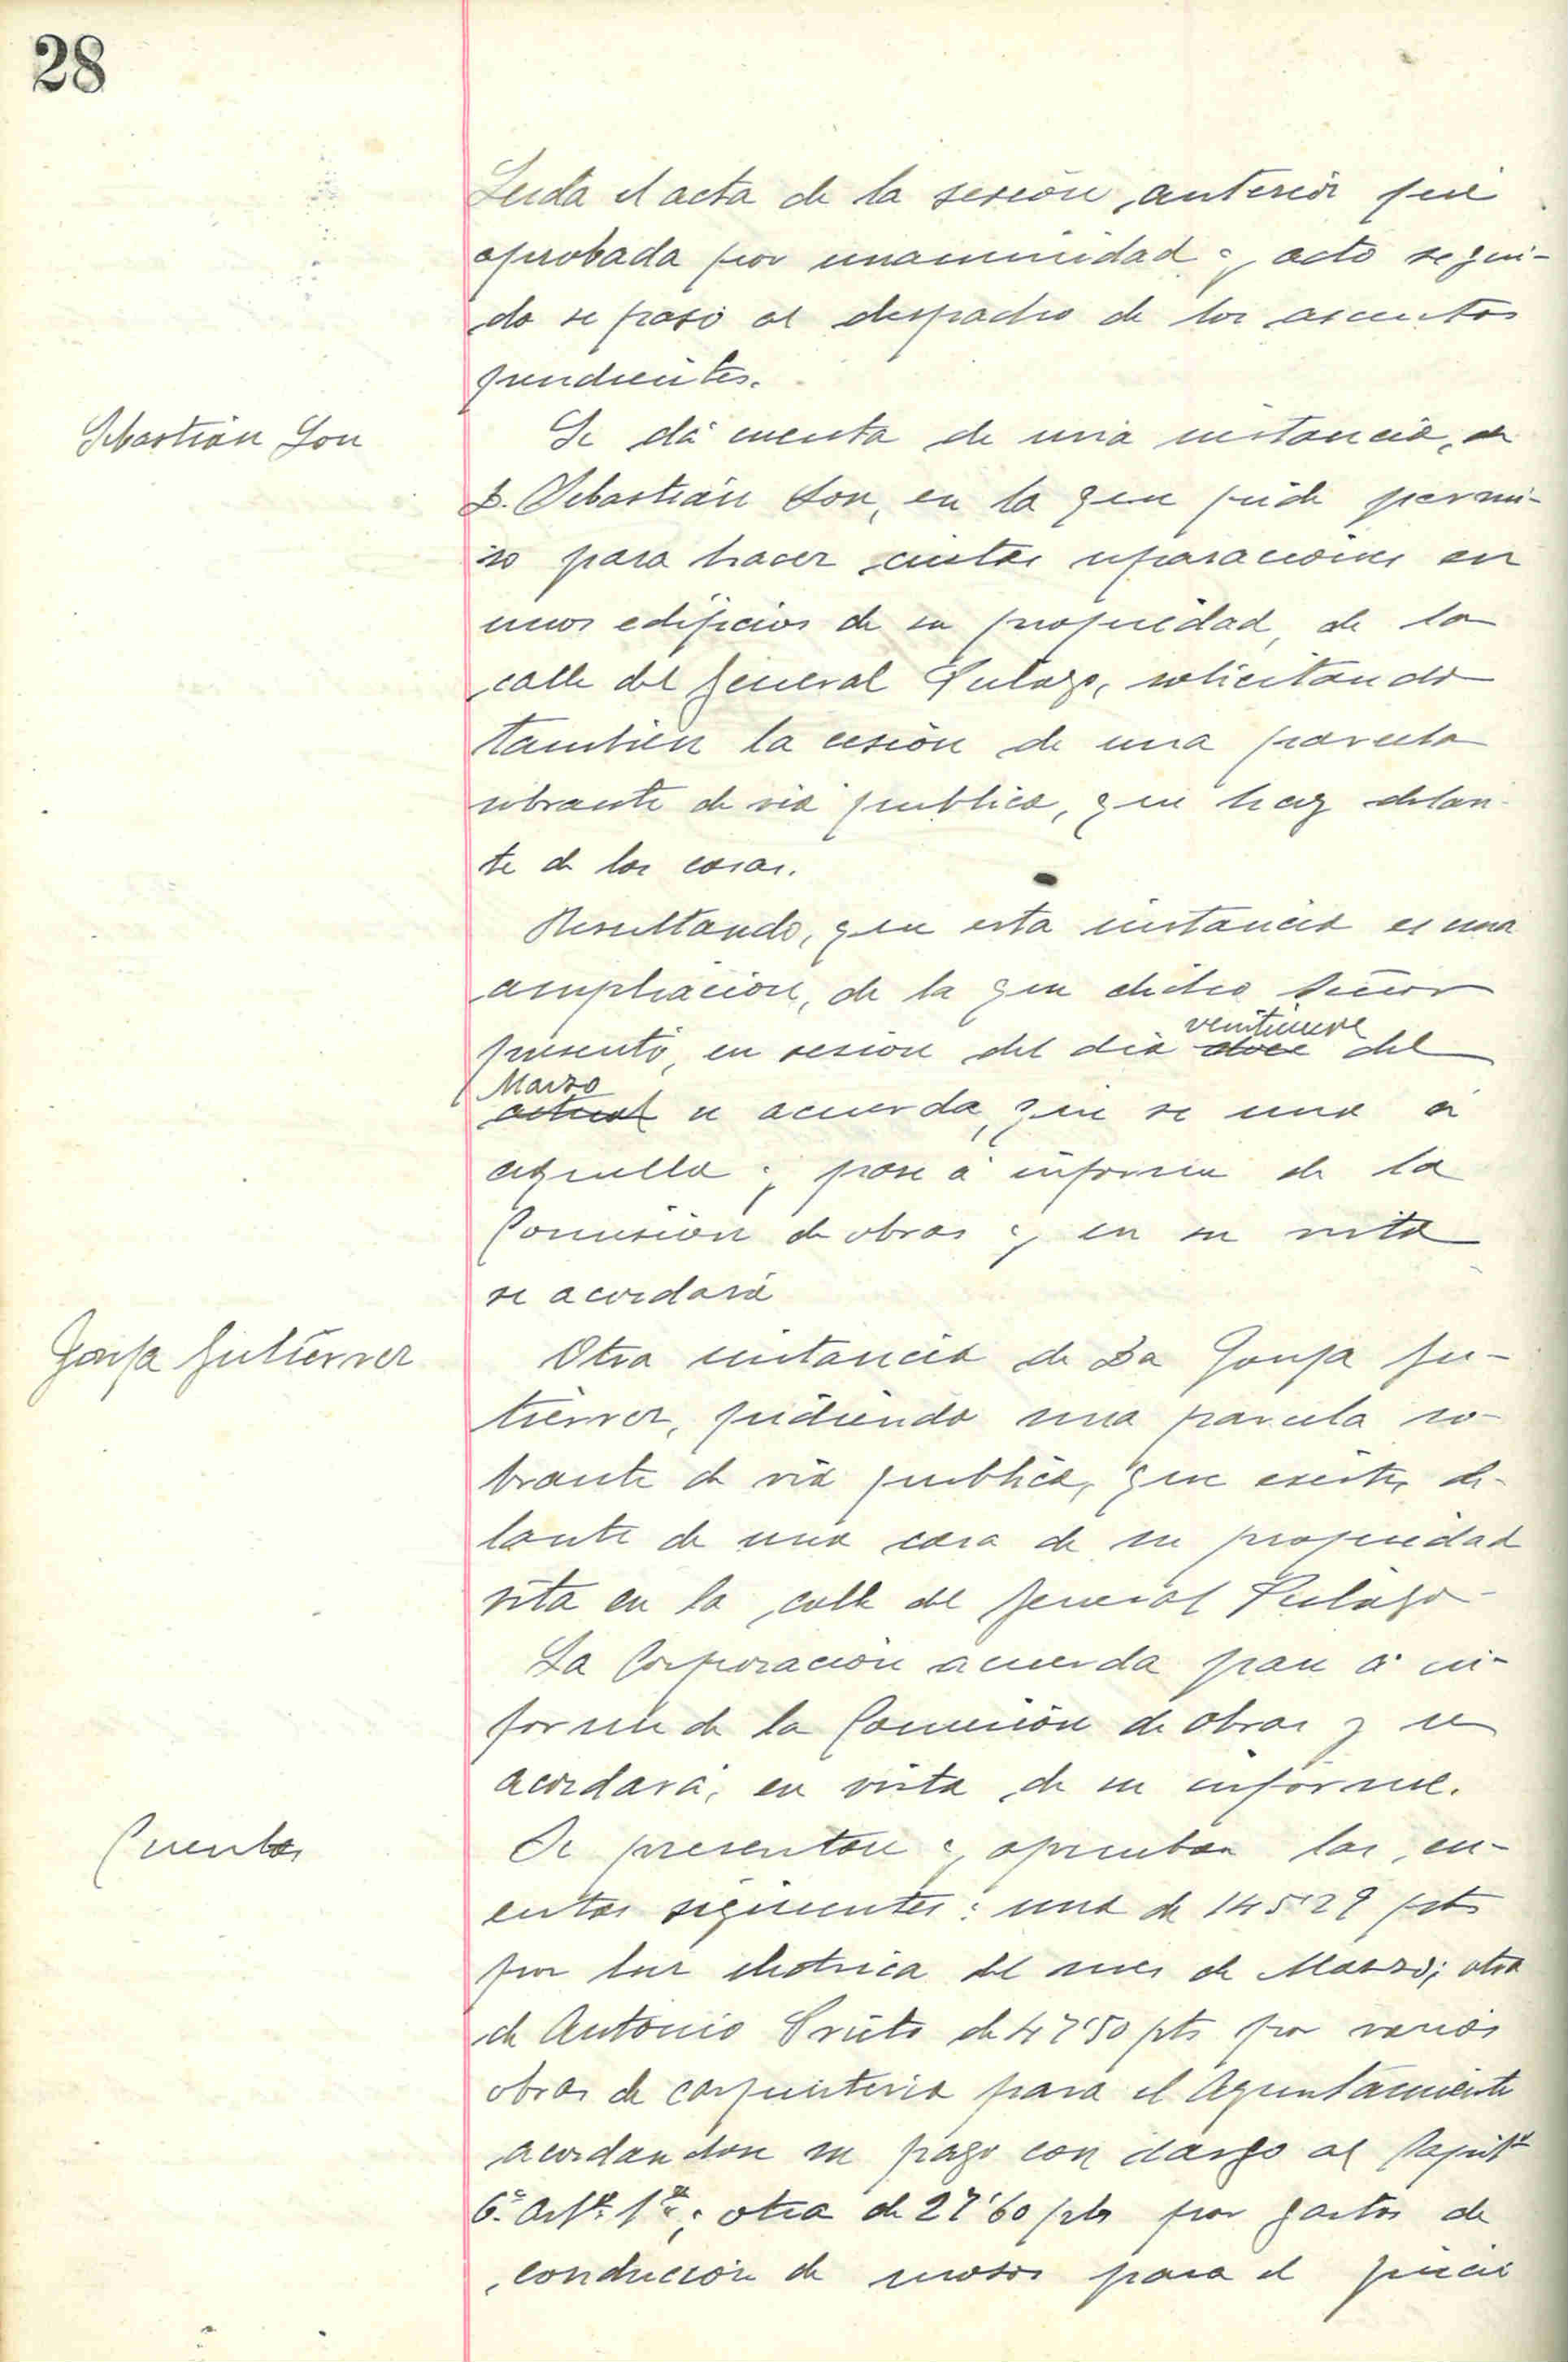 28
Leida el acta de la sesión anterior fué
aprobada por unanimidad y acto segui-
do se pasó al despacho de los asuntos
pendientes.
Sebastián Son
Se dá cuenta de una instancia, de
D. Sebastián Son, en la que pide permi-
so para hacer ciertas reparaciones en
unos edificios de su propiedad, de la
calle del General Pulazo, solicitando
tambien la cesión de una parcela
sobrante de via publica, que hay delan-
te de las casas.
Resultando, que esta instancia es una
ampliacion, de la que dicho señor
presentó, en sesion del dia doce veintinueve del
actual Marzo se acuerda, que se una á
aquella y pase á informe de la
Comision de obras y en su vista
se acordará
Josefa Gutiérrez
Otra instancia de Da Josefa Gu-
tiérrez, pidiendo una parcela so-
brante de via publica, que existe, de-
lante de una casa de su propiedad
sita en la calle del General Pulazo
La Corporación acuerda pase á in-
forme de la Comisión de obras y se
acordará, en vista de su informe.
Cuentas
Se presentan y aprueban las cu-
entas siguientes: una de 145'29 pts
por luz electrica del mes de Marzo; otra
de Antonio Prieto de 47'50 pts por varias
obras de carpinteria para el Ayuntamiento
acordandose su pago con cargo al Capitº
6º Artº 1º; otra de 27'60 pts por gastos de
conducion de mozos para el juicio